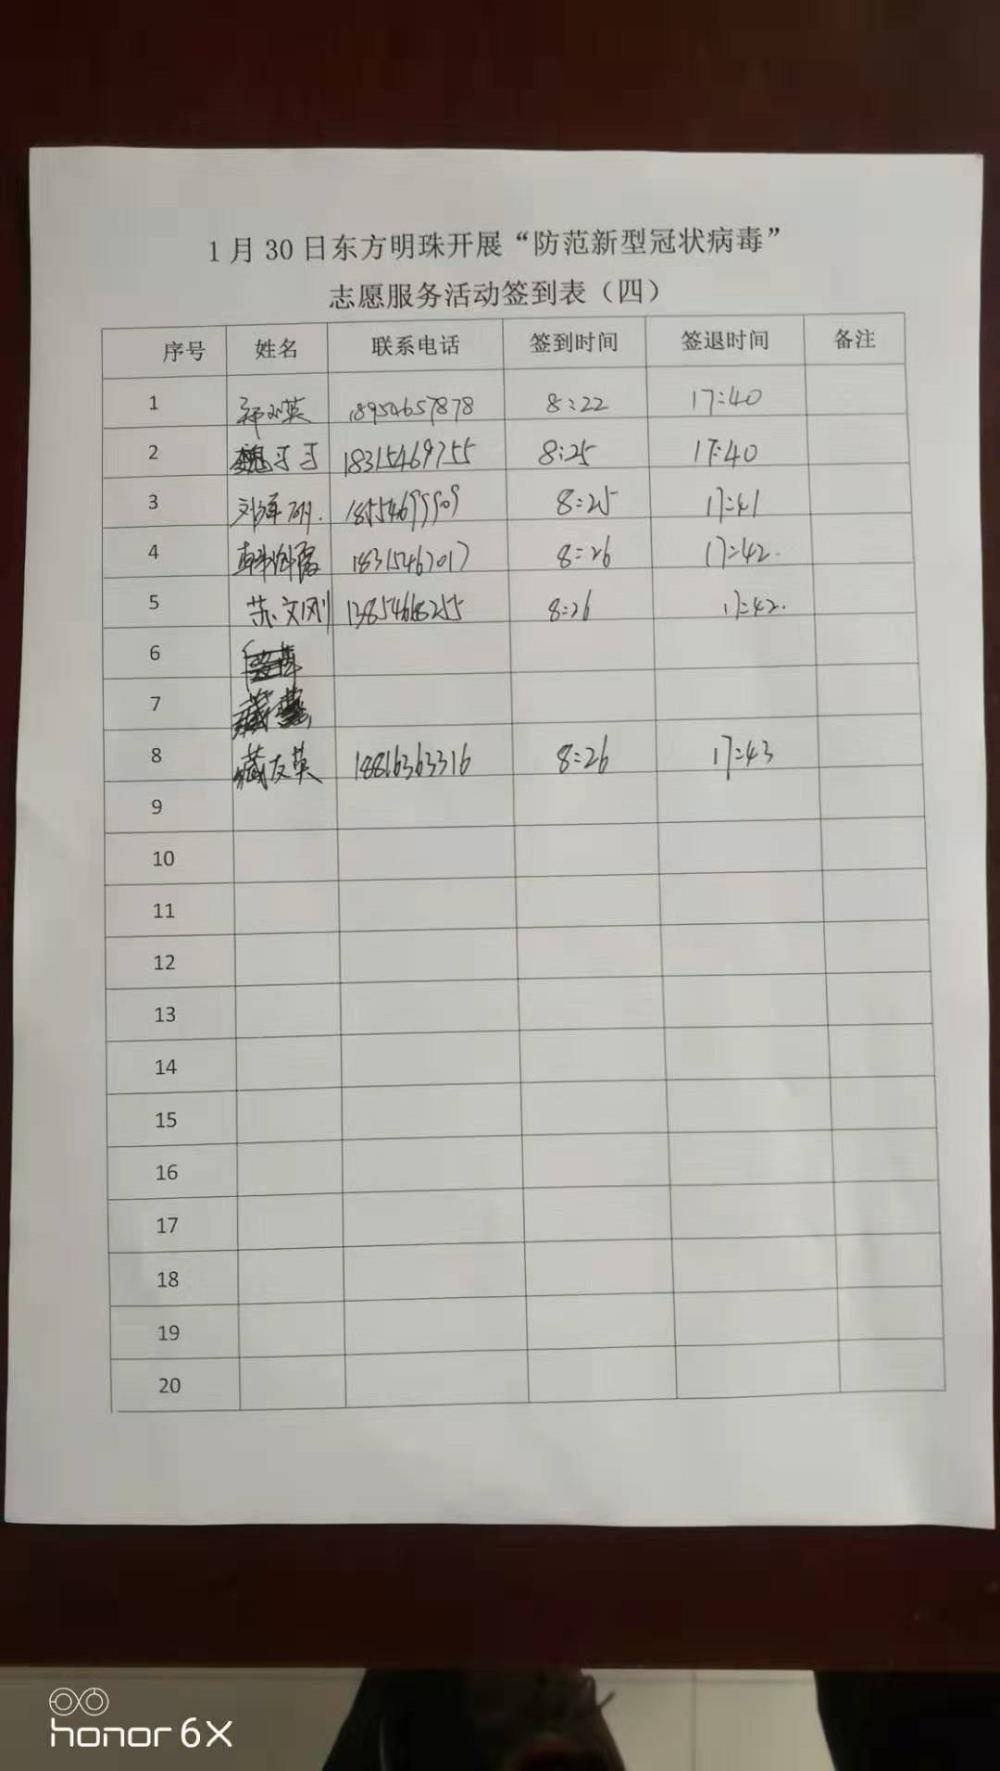 1月30日东方明珠开展“防范新型冠状病毒”
志愿服务活动签到表（四）
序号 姓名 联系电话 签到时间 签退时间 备注
1 18954657878 8:22 17:40
2 魏于于 18315469755 8:25 17:40
3 8:25 17:41
4 18315467017 8:26 17:42.
5 苏文刚 8:26 17:42.
6
7
8 藏友英 18816363316 8:26 17:43
9
10
11
12
13
14
15
16
17
18
19
20
honor 6X